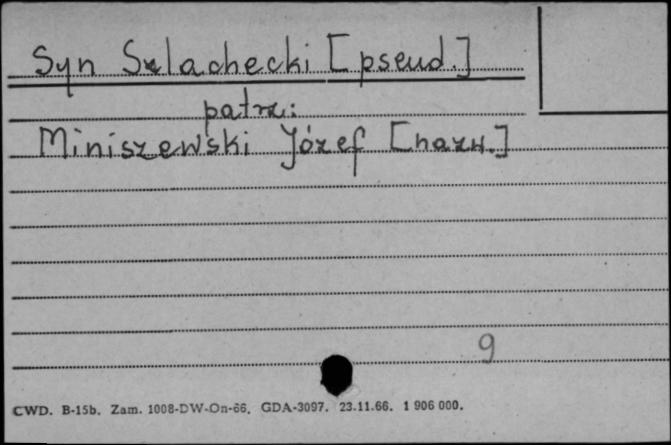 Syn Szlachecki [pseud.]
patrz:
Miniszewski Józef [nazw.]
9
CWD. B-15b. Zam. 1008-DW-On-66. GDA-3097. 23.11.66. 1 906 000.